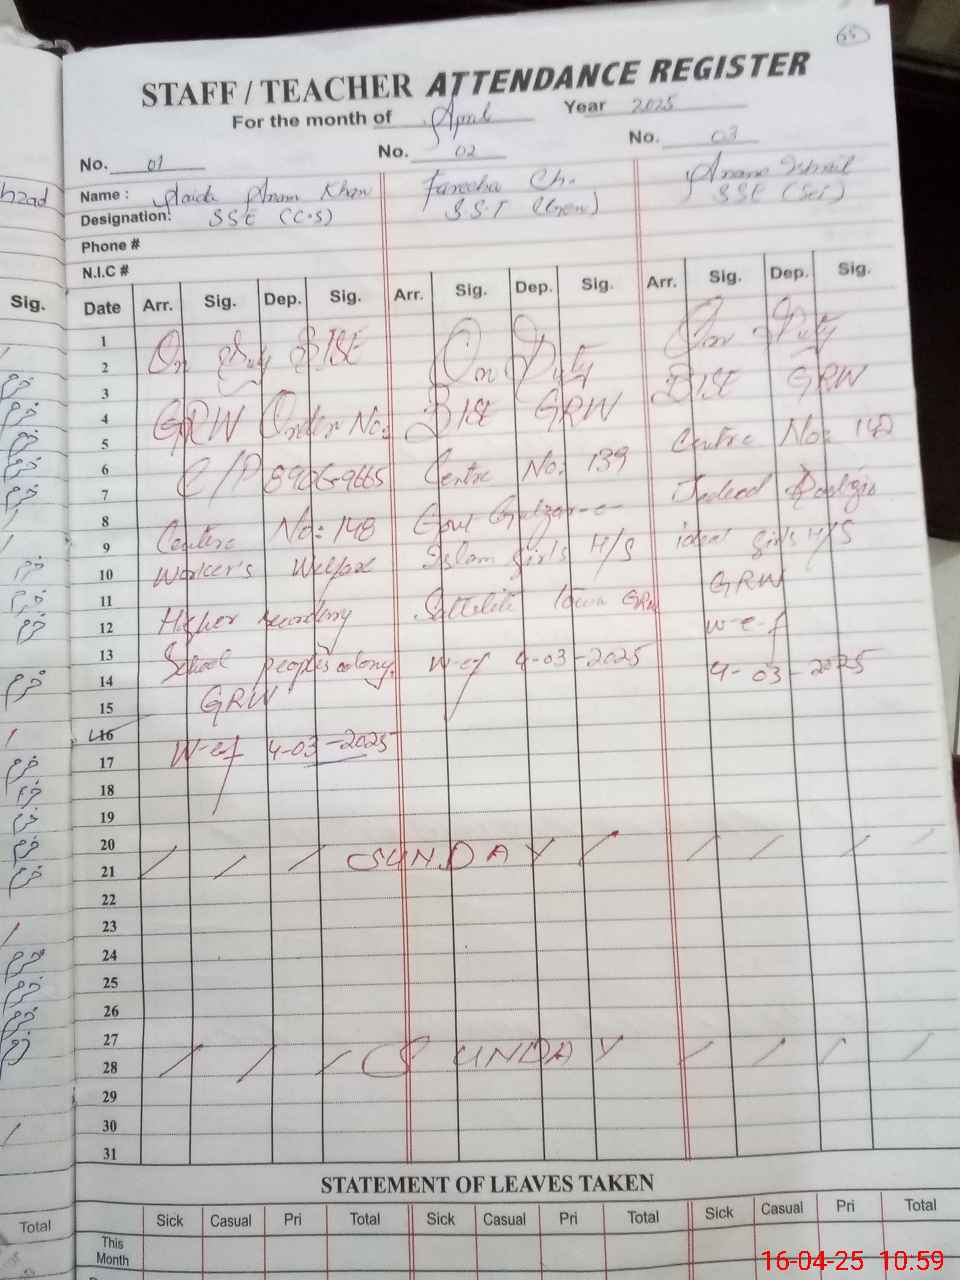 65
STAFF / TEACHER ATTENDANCE REGISTER
For the month of April Year 2025
No. 01 No. 02 No. 03
Name : Anam Khan Fareeha Ch. Anam
Designation: SSE (C.S) S.S.T (Gen) SSE (Sci)
Phone #
N.I.C #
Date Arr. Sig. Dep. Sig. Arr. Sig. Dep. Sig. Arr. Sig. Dep. Sig.
1
2
3
4
5
6
7
8
9
10
11
12
13
14
15
16
17
18
19
20
21
22
23
24
25
26
27
28
29
30
31
On Duty BISE
GRW Order No:
C/P 8906-9665
Centre No: 148
Worker's Welfare
Higher secondary
School people's colony
GRW
W-e-f 4-03-2025
On Duty
BISE GRW
Centre No: 139
Govt Gulzar-e-
Islam girls H/S
Town GRW
W-e-f 4-03-2025
On Duty
BISE GRW
Centre No: 142
ideal girls H/S
GRW
w-e-f
4-03-2025
SUNDAY
SUNDAY
STATEMENT OF LEAVES TAKEN
Sick Casual Pri Total Sick Casual Pri Total Sick Casual Pri Total
This
Month
hzad
Sig.
Total
16-04-25 10:59